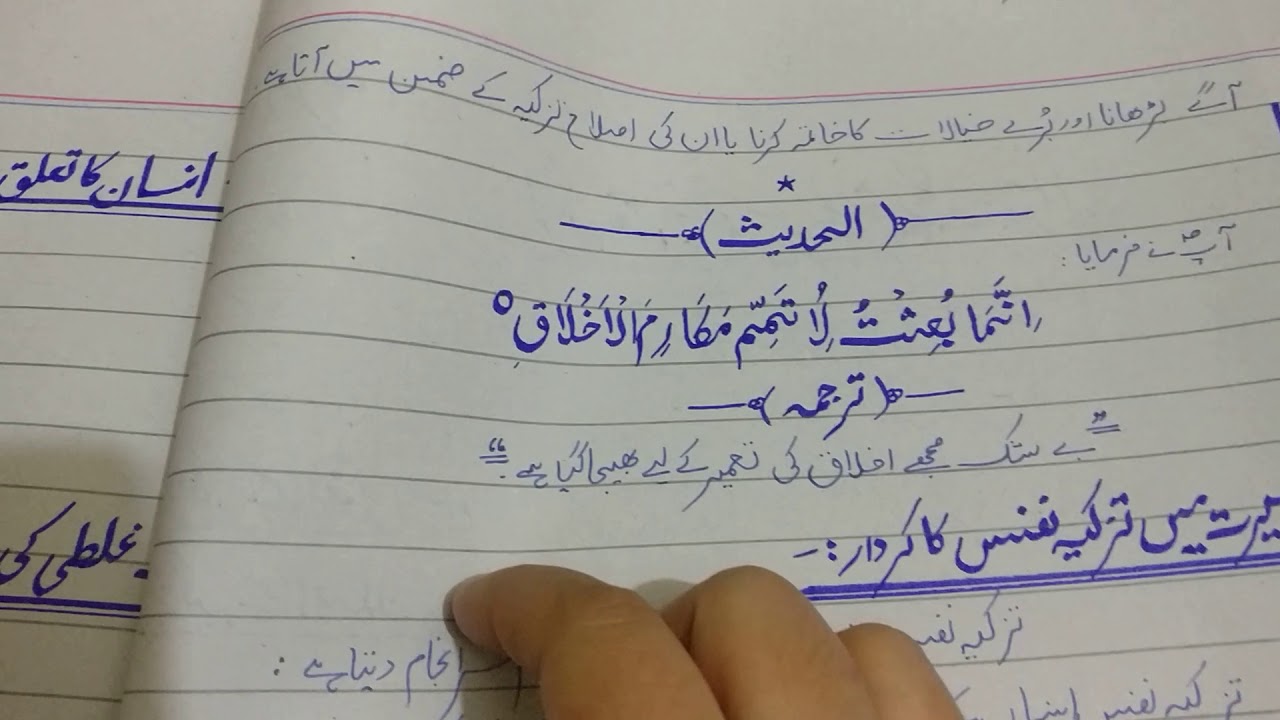 آگے بڑھانا اور بُرے خیالات کا خاتمہ کرنا یا ان کی اصلاح تزکیہ کے ضمن میں آتا ہے۔
(الحدیث)
آپؐ نے فرمایا:
اِنَّمَا بُعِثْتُ لِاُتَمِّمَ مَكَارِمَ الْاَخْلَاقِ
(ترجمہ)
"بے شک مجھے اخلاق کی تعمیر کے لیے بھیجا گیا ہے۔"
میں تزکیہ نفس کا کردار:-
تزکیہ
انجام دیتا ہے:
تزکیہ نفس
انسان کا تعلق
غلطی کی